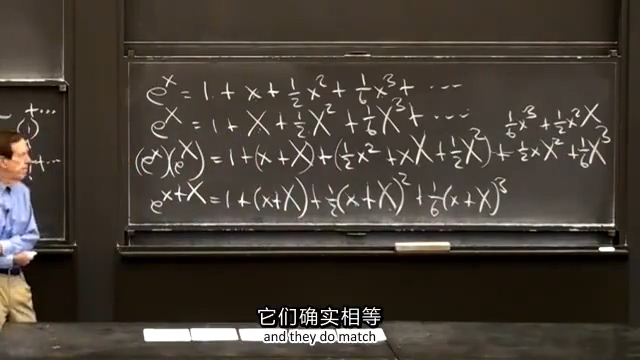 +...
(1)
+...
e^x = 1 + x + 1/2 x² + 1/6 x³ + ...
e^X = 1 + X + 1/2 X² + 1/6 X³ + ...
1/6 x³ + 1/2 x² X
(e^x)(e^X) = 1 + (x + X) + (1/2 x² + xX + 1/2 X²) + 1/2 x X² + 1/6 X³
e^(x+X) = 1 + (x+X) + 1/2 (x+X)² + 1/6 (x+X)³
它们确实相等
and they do match